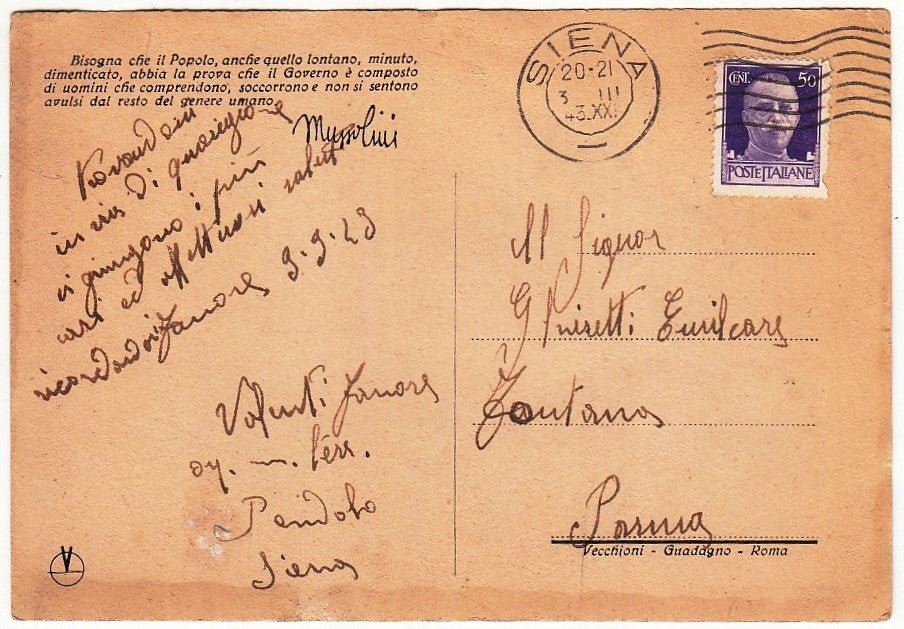 Bisogna che il Popolo, anche quello lontano, minuto,
dimenticato, abbia la prova che il Governo è composto
di uomini che comprendono, soccorrono e non si sentono
avulsi dal resto del genere umano.
Mussolini
SIENA
20-21
3 III
43.XX
CENT. 50
POSTE ITALIANE
in via di guarigione
vi giungano i più
cari ed affettuosi saluti
3-3-43
Al Signor
Fontana
Parma
Valenti
Siena
Vecchioni - Guadagno - Roma